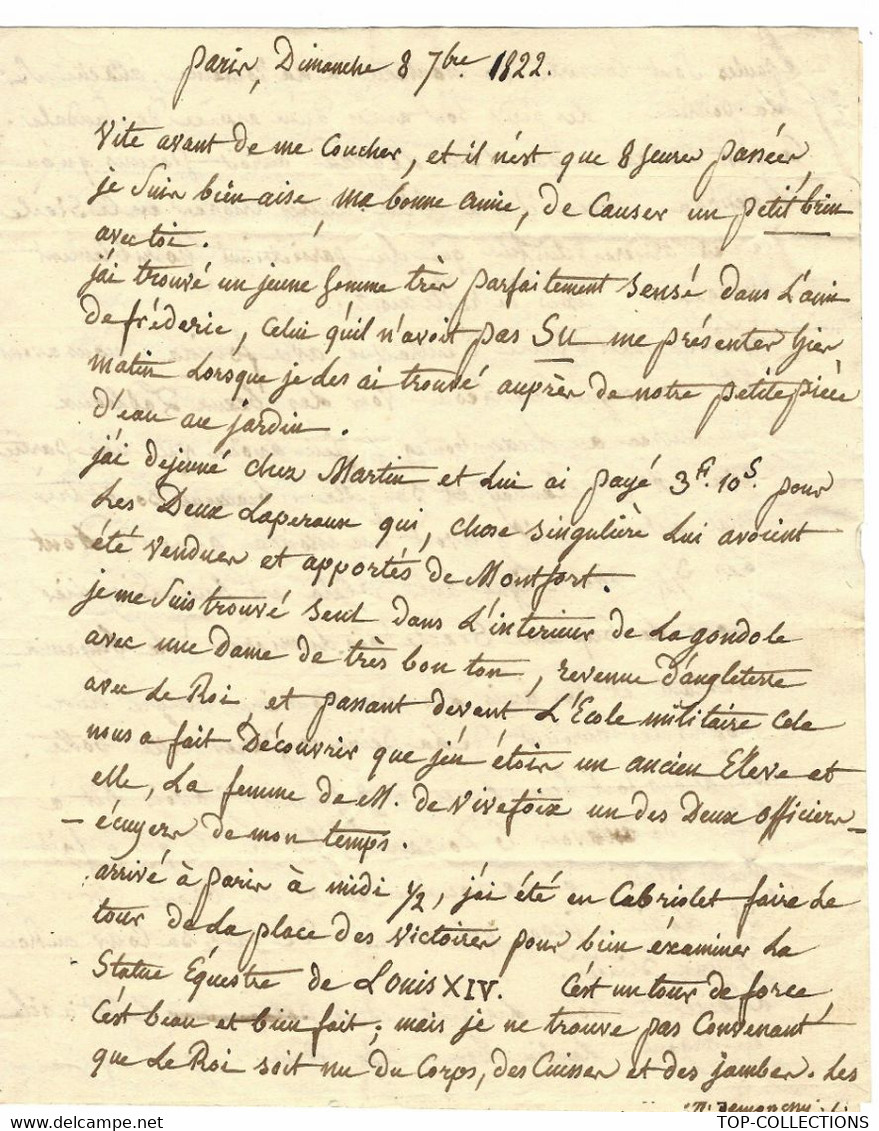 paris, Dimanche 8 7bre 1822.
Vite avant de me Coucher, et il n'est que 8 heures passées,
je suis bien aise, ma bonne amie, de Causer un petit brin
avec toi.
j'ai trouvé un jeune homme très parfaitement sensé dans L'ami
de fréderic, Celui qu'il n'avoit pas Su me présenter hier
matin Lorsque je Les ai trouvé auprès de notre petite pièce
d'eau au jardin.
j'ai dejeuné chez Martin et Lui ai payé 3f. 10s. pour
Les Deux Laperaux qui, chose singulière Lui avoient
été vendues et apportés de Montfort.
je me suis trouvé seul dans L'interieur de La gondole
avec une Dame de très bon ton, revenue d'angleterre
avec Le Roi, et passant devant L'Ecole militaire Cela
nous a fait Découvrir que j'en étois un ancien Eleve et
elle, La femme de M. de Vivefoix un des Deux officiers
- écuyers de mon temps. -
arrivé à paris à midi 1/2, j'ai été en Cabriolet faire Le
tour de La place des Victoires pour bien éxaminer La
Statue Équestre de Louis XIV. C'est un tour de force,
C'est beau et bien fait; mais je ne trouve pas Convenant
que Le Roi soit nu du Corps, des Cuisses et des jambes. Les
WWW.DELCAMPE.NET
TOP-COLLECTIONS